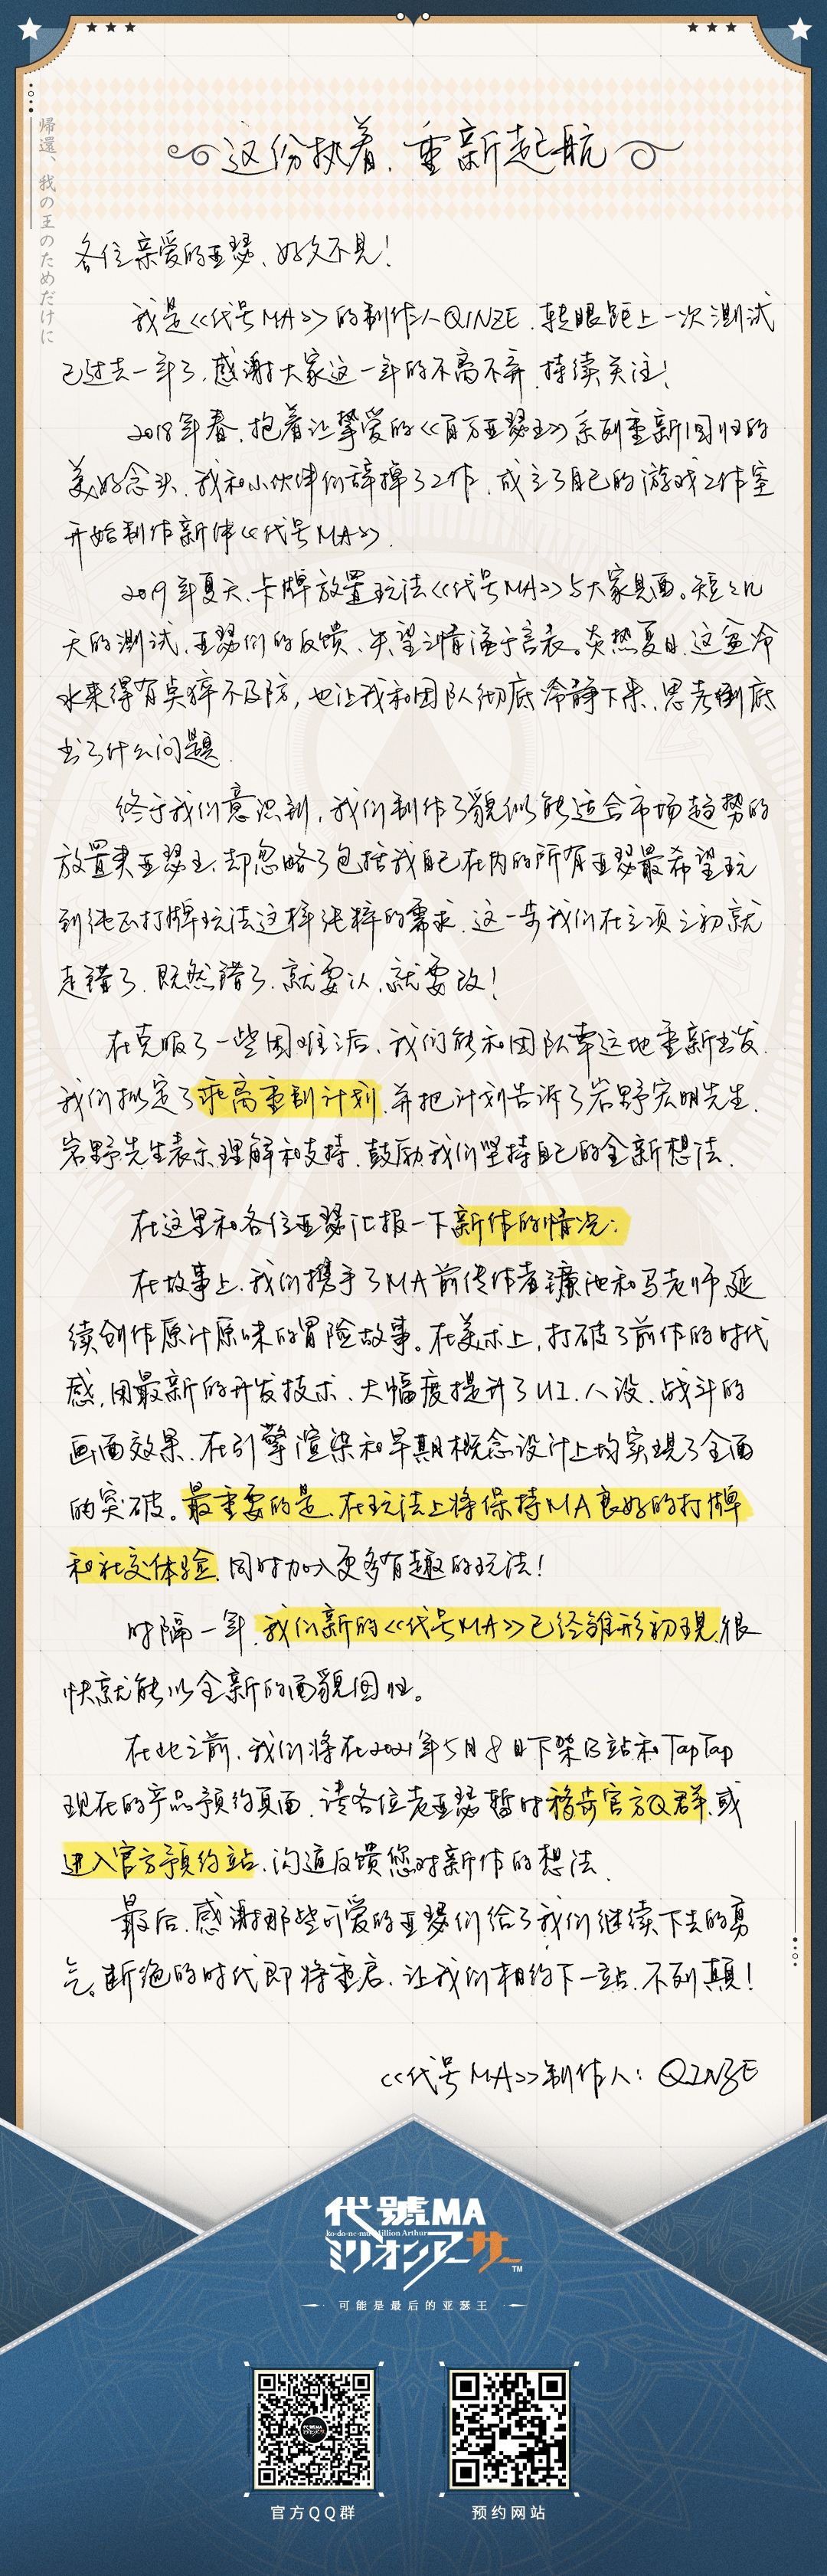 帰還、我の王のためだけに
这份执着、重新起航
各位亲爱的亚瑟、好久不见！
我是《代号MA》的制作人QINZE、转眼距上一次测试
已过去一年了、感谢大家这一年的不离不弃、持续关注！
2018年春、抱着让挚爱的《百万亚瑟王》系列重新回归的
美好念头、我和小伙伴们辞掉了工作、成立了自己的游戏工作室
开始制作新作《代号MA》.
2019年夏天、卡牌放置玩法《代号MA》与大家见面。短短几
天的测试、亚瑟们的反馈、失望之情溢于言表。炎热夏日、这盆冷
水来得有点猝不及防，也让我和团队彻底冷静下来、思考到底
出了什么问题.
终于我们意识到，我们制作了貌似能适合市场趋势的
放置类亚瑟王、却忽略了包括我自己在内的所有亚瑟最希望玩
到纯正打牌玩法这样纯粹的需求、这一步我们在立项之初就
走错了、既然错了、就要认、就要改！
在克服了一些困难之后、我们能和团队幸运地重新出发.
我们拟定了乖离重制计划、并把计划告诉了岩野宏明先生.
岩野先生表示理解和支持、鼓励我们坚持自己的全新想法.
在这里和各位亚瑟汇报一下新作的情况：
在故事上、我们携手了MA前传作者镰池和马老师、延
续创作原汁原味的冒险故事。在美术上，打破了前作的时代
感，用最新的开发技术、大幅度提升了UI、人设、战斗的
画面效果、在引擎渲染和早期概念设计上均实现了全面
的突破。最重要的是、在玩法上将保持MA良好的打牌
和社交体验、同时加入更多有趣的玩法！
时隔一年、我们新的《代号MA》已经雏形初现、很
快就能以全新的面貌回归。
在此之前、我们将在2021年5月8日下架B站和TapTap
现在的产品预约页面、请各位老亚瑟暂时移步官方Q群、或
进入官方预约站、沟通反馈您对新作的想法.
最后、感谢那些可爱的亚瑟们给了我们继续下去的勇
气。断绝的时代即将重启、让我们相约下一站、不列颠！
《代号MA》制作人：QINZE
代號MA
ko-do-ne-mu Million Arthur
ミリオンアーサー
TM
可能是最后的亚瑟王
官方QQ群
预约网站